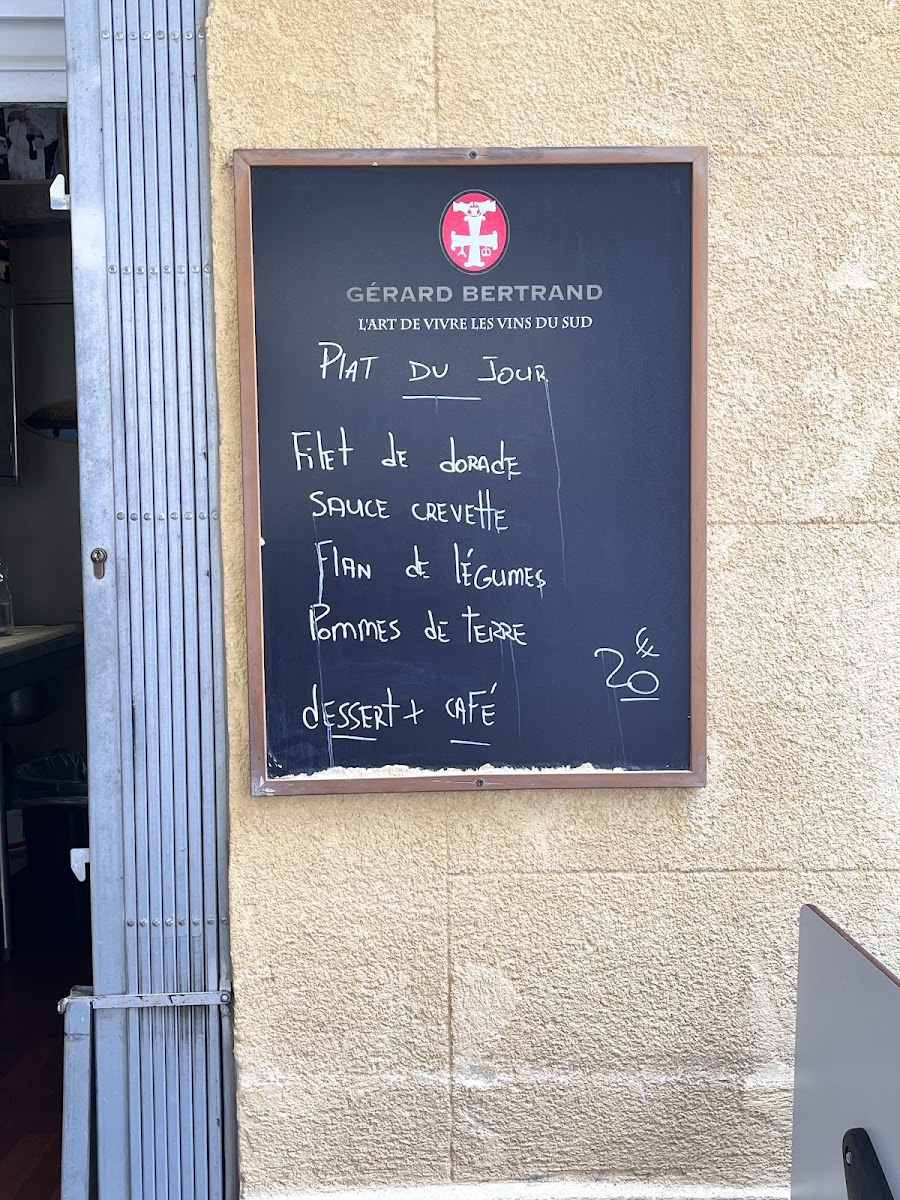 GÉRARD BERTRAND
L'ART DE VIVRE LES VINS DU SUD
PLAT DU JOUR
Filet de dorade
SAUCE CREVETTE
Flan de légumes
Pommes de terre
20 €
dessert + café